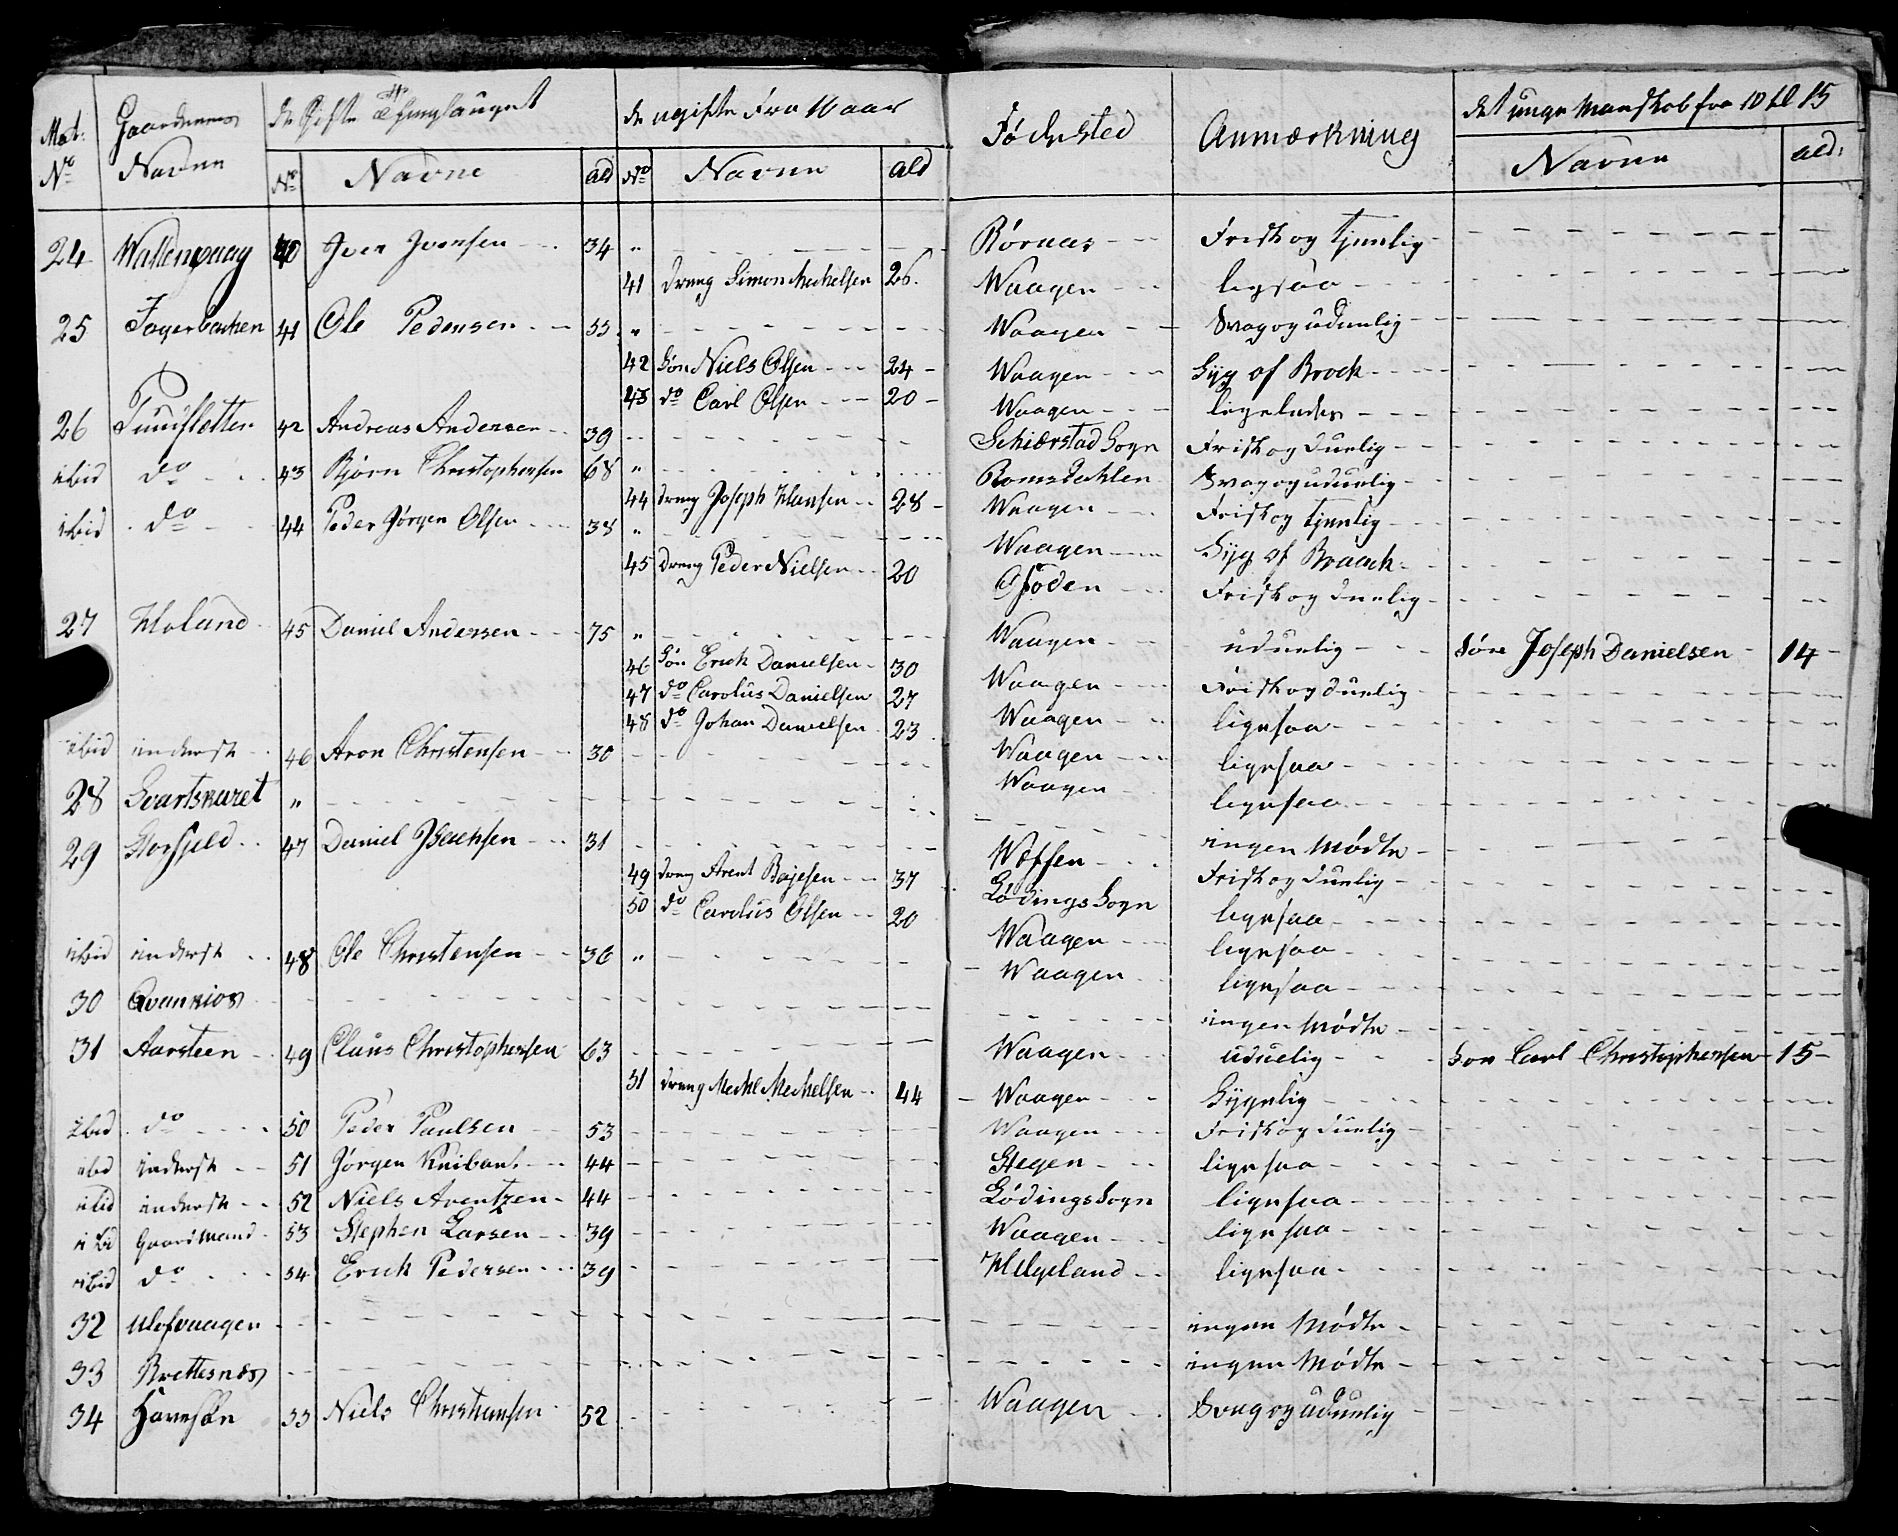 Mat: No Gaardenes Navne de Gifte No Navne Ald de ugifte Fra 16 aar No Navne Ald Fødested Anmærkning det unge Mandskab fra 10 til 15 Navne Ald:
24 40 Iver Iversen 34 " Rørnæs Frisk og tjenlig
41 Dreng Simon Mechelsen 26. Waagen ligesaa
25 Fagerbachen 41 Ole Pedersen 55 " Waagen Svag og uduelig
42 Søn Niels Olsen 24 Waagen Syg af Brock
43 do Carl Olsen 20 Waagen ligeledes
26 42 Andreas Andersen 39 Schierstad Sogn Frisk og duelig
ibid do 43 Bjørn Christophersen 68 " Romsdahlen Svag og uduelig
44 Dreng Joseph Hansen 28 Waagen Frisk og tjenlig
ibid do 44 Peder Jørgen Olsen 38 " Waagen Syg af Braack
45 Dreng Peder Nielsen 20 Frisk og duelig
27 Holand 45 Daniel Andersen 75 " Waagen uduelig Søn Joseph Danielsen 14
46 Søn Erich Danielsen 30 Waagen Frisk og duelig
47 do Carolus Danielsen 27 Waagen ligesaa
48 do Johan Danielsen 23 Waagen ligesaa
ibid inderst 46 Aron Christensen 30 Waagen ligesaa
28 Svartskaret " ingen Mødte
29 Storfield 47 Daniel Isachsen 31 Wefsen Frisk og duelig
49 Dreng Arent Bajesen 37 Lødings Sogn ligesaa
50 do Carolus Olsen 20 Waagen ligesaa
ibid inderst 48 Ole Christensen 36 " Waagen ligesaa
30 Qvannios ingen Mødte
31 Aarsteen 49 Claus Christophersen 63 Waagen uduelig Søn Carl Christophersen 15
51 Dreng Mechel Mechelsen 44 Waagen Sygelig
ibid do 50 Peder Paulsen 53 Waagen Frisk og duelig
ibid inderst 51 Jørgen Knibant 44 Stegen ligesaa
ibid inderst 52 Niels Arentzen 44 Lødings Sogn ligesaa
ibid Gaardmand 53 Stephen Larsen 39 Waagen ligesaa
ibid do 54 Erich Pedersen 39 Helgeland ligesaa
32 Ulefvaagen ingen Mødte
33 Brettesnæs ingen Mødte
34 55 Niels Christiansen 52 Waagen Svag og uduelig